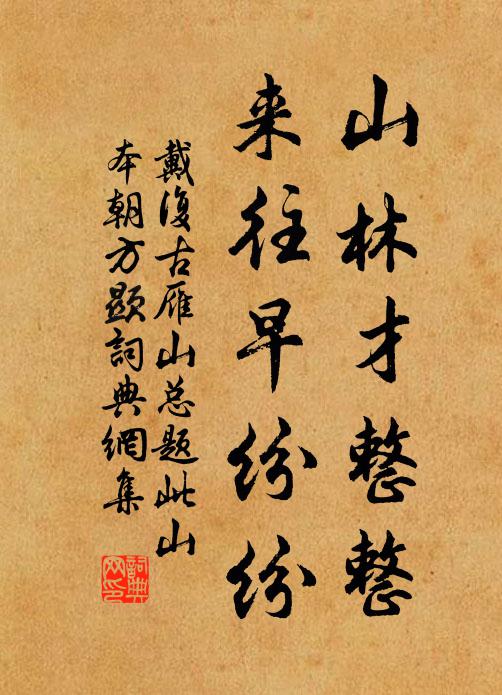 山林才整整
来往早纷纷
戴復古雁山总题此山
本朝方顯詞典網集
詞典网印